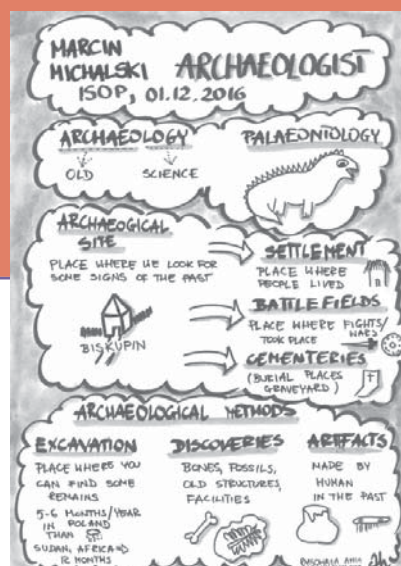 MARCIN
MICHALSKI ARCHAEOLOGIST
ISOP, 01.12.2016
ARCHAEOLOGY
OLD SCIENCE
PALAEONTOLOGY
ARCHAEOGICAL
SITE
PLACE WHERE WE LOOK FOR
SOME SIGNS OF THE PAST
BISKUPIN
SETTLEMENT
PLACE WHERE
PEOPLE LIVED
BATTLE FIELDS
PLACE WHERE FIGHTS/
WARS
TOOK PLACE
CEMENTERIES
(BURIAL PLACES
GRAVEYARD)
ARCHAEOLOGICAL METHODS
EXCAVATION
PLACE WHERE YOU
CAN FIND SOME
REMAINS
5-6 MONTHS/YEAR
IN POLAND
THAN
SUDAN, AFRICA
12 MONTHS
DISCOVERIES
BONES, FOSSILS,
OLD STRUCTURES,
FACILITIES
ARTIFACTS
MADE BY
HUMAN
IN THE PAST